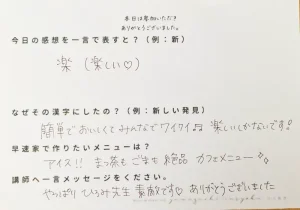 本日は参加いただき
ありがとうございました。
今日の感想を一言で表すと？（例：新）
楽（楽しい♡）
なぜその漢字にしたの？（例：新しい発見）
簡単でおいしくてみんなでワイワイ♫ 楽しいしかないです！
早速家で作りたいメニューは？
アイス!! まっ茶もごまも 絶品 カフェメニュー
講師へ一言メッセージをください。
やっぱりひろみ先生 素敵です♡ ありがとうございました